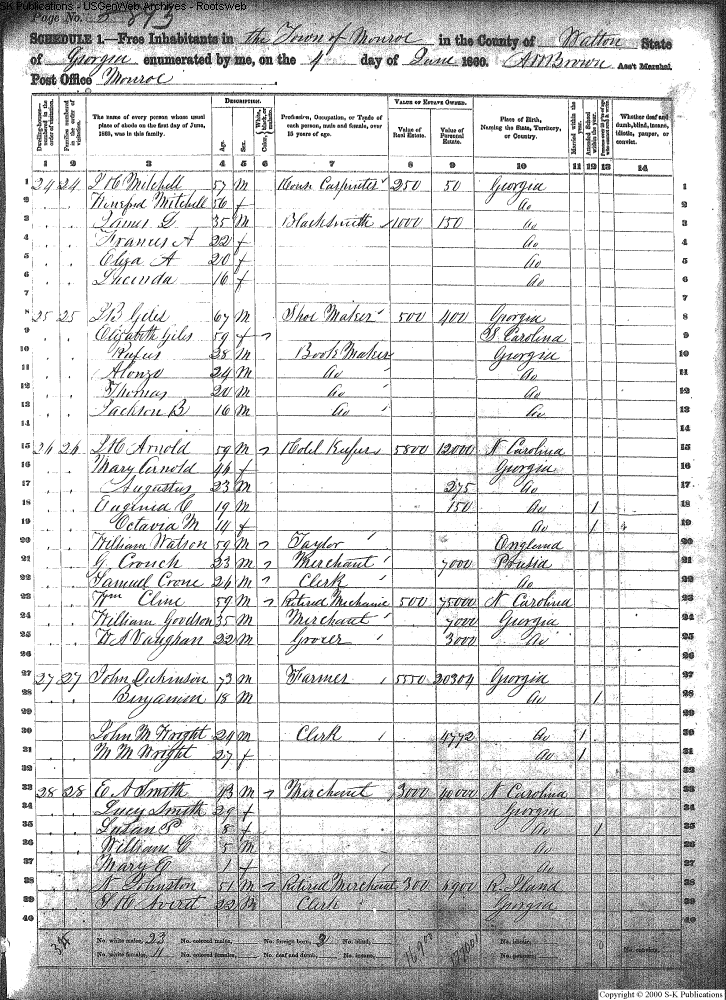 SK Publications - USGenWeb Archives - Rootsweb
Page No. 5 893
SCHEDULE 1.—Free Inhabitants in the Town of Monroe in the County of Walton State
of Georgia enumerated by me, on the 4 day of June 1860. AWBrown Ass't Marshal.
Post Office Monroe
DESCRIPTION. VALUE OF ESTATE OWNED.
Dwelling-houses—numbered in the order of visitation.
Families numbered in the order of visitation.
The name of every person whose usual place of abode on the first day of June, 1860, was in this family.
Age.
Sex.
Color, White, black, or mulatto.
Profession, Occupation, or Trade of each person, male and female, over 15 years of age.
Value of Real Estate.
Value of Personal Estate.
Place of Birth, Naming the State, Territory, or Country.
Married within the year.
Attended School within the year.
Whether deaf and dumb, blind, insane, idiotic, pauper, or convict.
1 2 3 4 5 6 7 8 9 10 11 12 13 14
1 24 24 Mitchell 57 m House Carpenter 250 50 Georgia 1
2 Mitchell 56 f Do 2
3 James L 35 m Blacksmith 1000 150 Do 3
4 Frances A 22 f Do 4
5 Eliza A 20 f Do 5
6 Lucinda 16 f Do 6
7 7
8 25 25 Giles 67 m Shoe Maker 500 400 Georgia 8
9 Elizabeth Giles 59 f S. Carolina 9
10 Rufus 28 m Boot Maker Georgia 10
11 Alonzo 24 m Do Do 11
12 Thomas 20 m Do Do 12
13 Jackson B 16 m Do Do 13
14 14
15 26 26 Arnold 59 m Hotel 5800 12000 N Carolina 15
16 Mary Arnold 46 f Georgia 16
17 Augustus 23 m 275 Do 17
18 Eugenia C 19 m 150 Do 1 18
19 Octavia M 14 f Do 1 19
20 William Watson 59 m Taylor England 20
21 G. Crouch 33 m Merchant 7000 Prusia 21
22 Samuel Crone 26 m Clerk Do 22
23 Wm Cline 59 m Retired Mechanic 500 75000 N Carolina 23
24 William Goodson 35 m Merchant 7000 Georgia 24
25 Vaughan 22 m Grocer 3000 Do 25
26 26
27 27 27 John Dickinson 73 m Farmer 5550 20304 Georgia 27
28 Benjamin 18 m Do 1 28
29 29
30 John M Wright 24 m Clerk 4772 Do 1 30
31 M M Wright 27 f Do 1 31
32 32
33 28 28 E A Smith 43 m Merchant 3000 40000 N Carolina 33
34 Lucy Smith 29 f Georgia 34
35 Susan P 8 f Do 1 35
36 William C 5 m Do 36
37 Mary 1 f Do 37
38 Johnston 51 m Retired Merchant 300 6900 R. Iland 38
39 Averet 22 m Clerk Georgia 39
40 40
No. white males, 23 No. colored males, No. foreign born, 3 No. blind,
No. white females, 11 No. colored females, No. deaf and dumb, No. insane, No. idiotic, No. paupers, No. convicts,
Copyright © 2000 S-K Publications